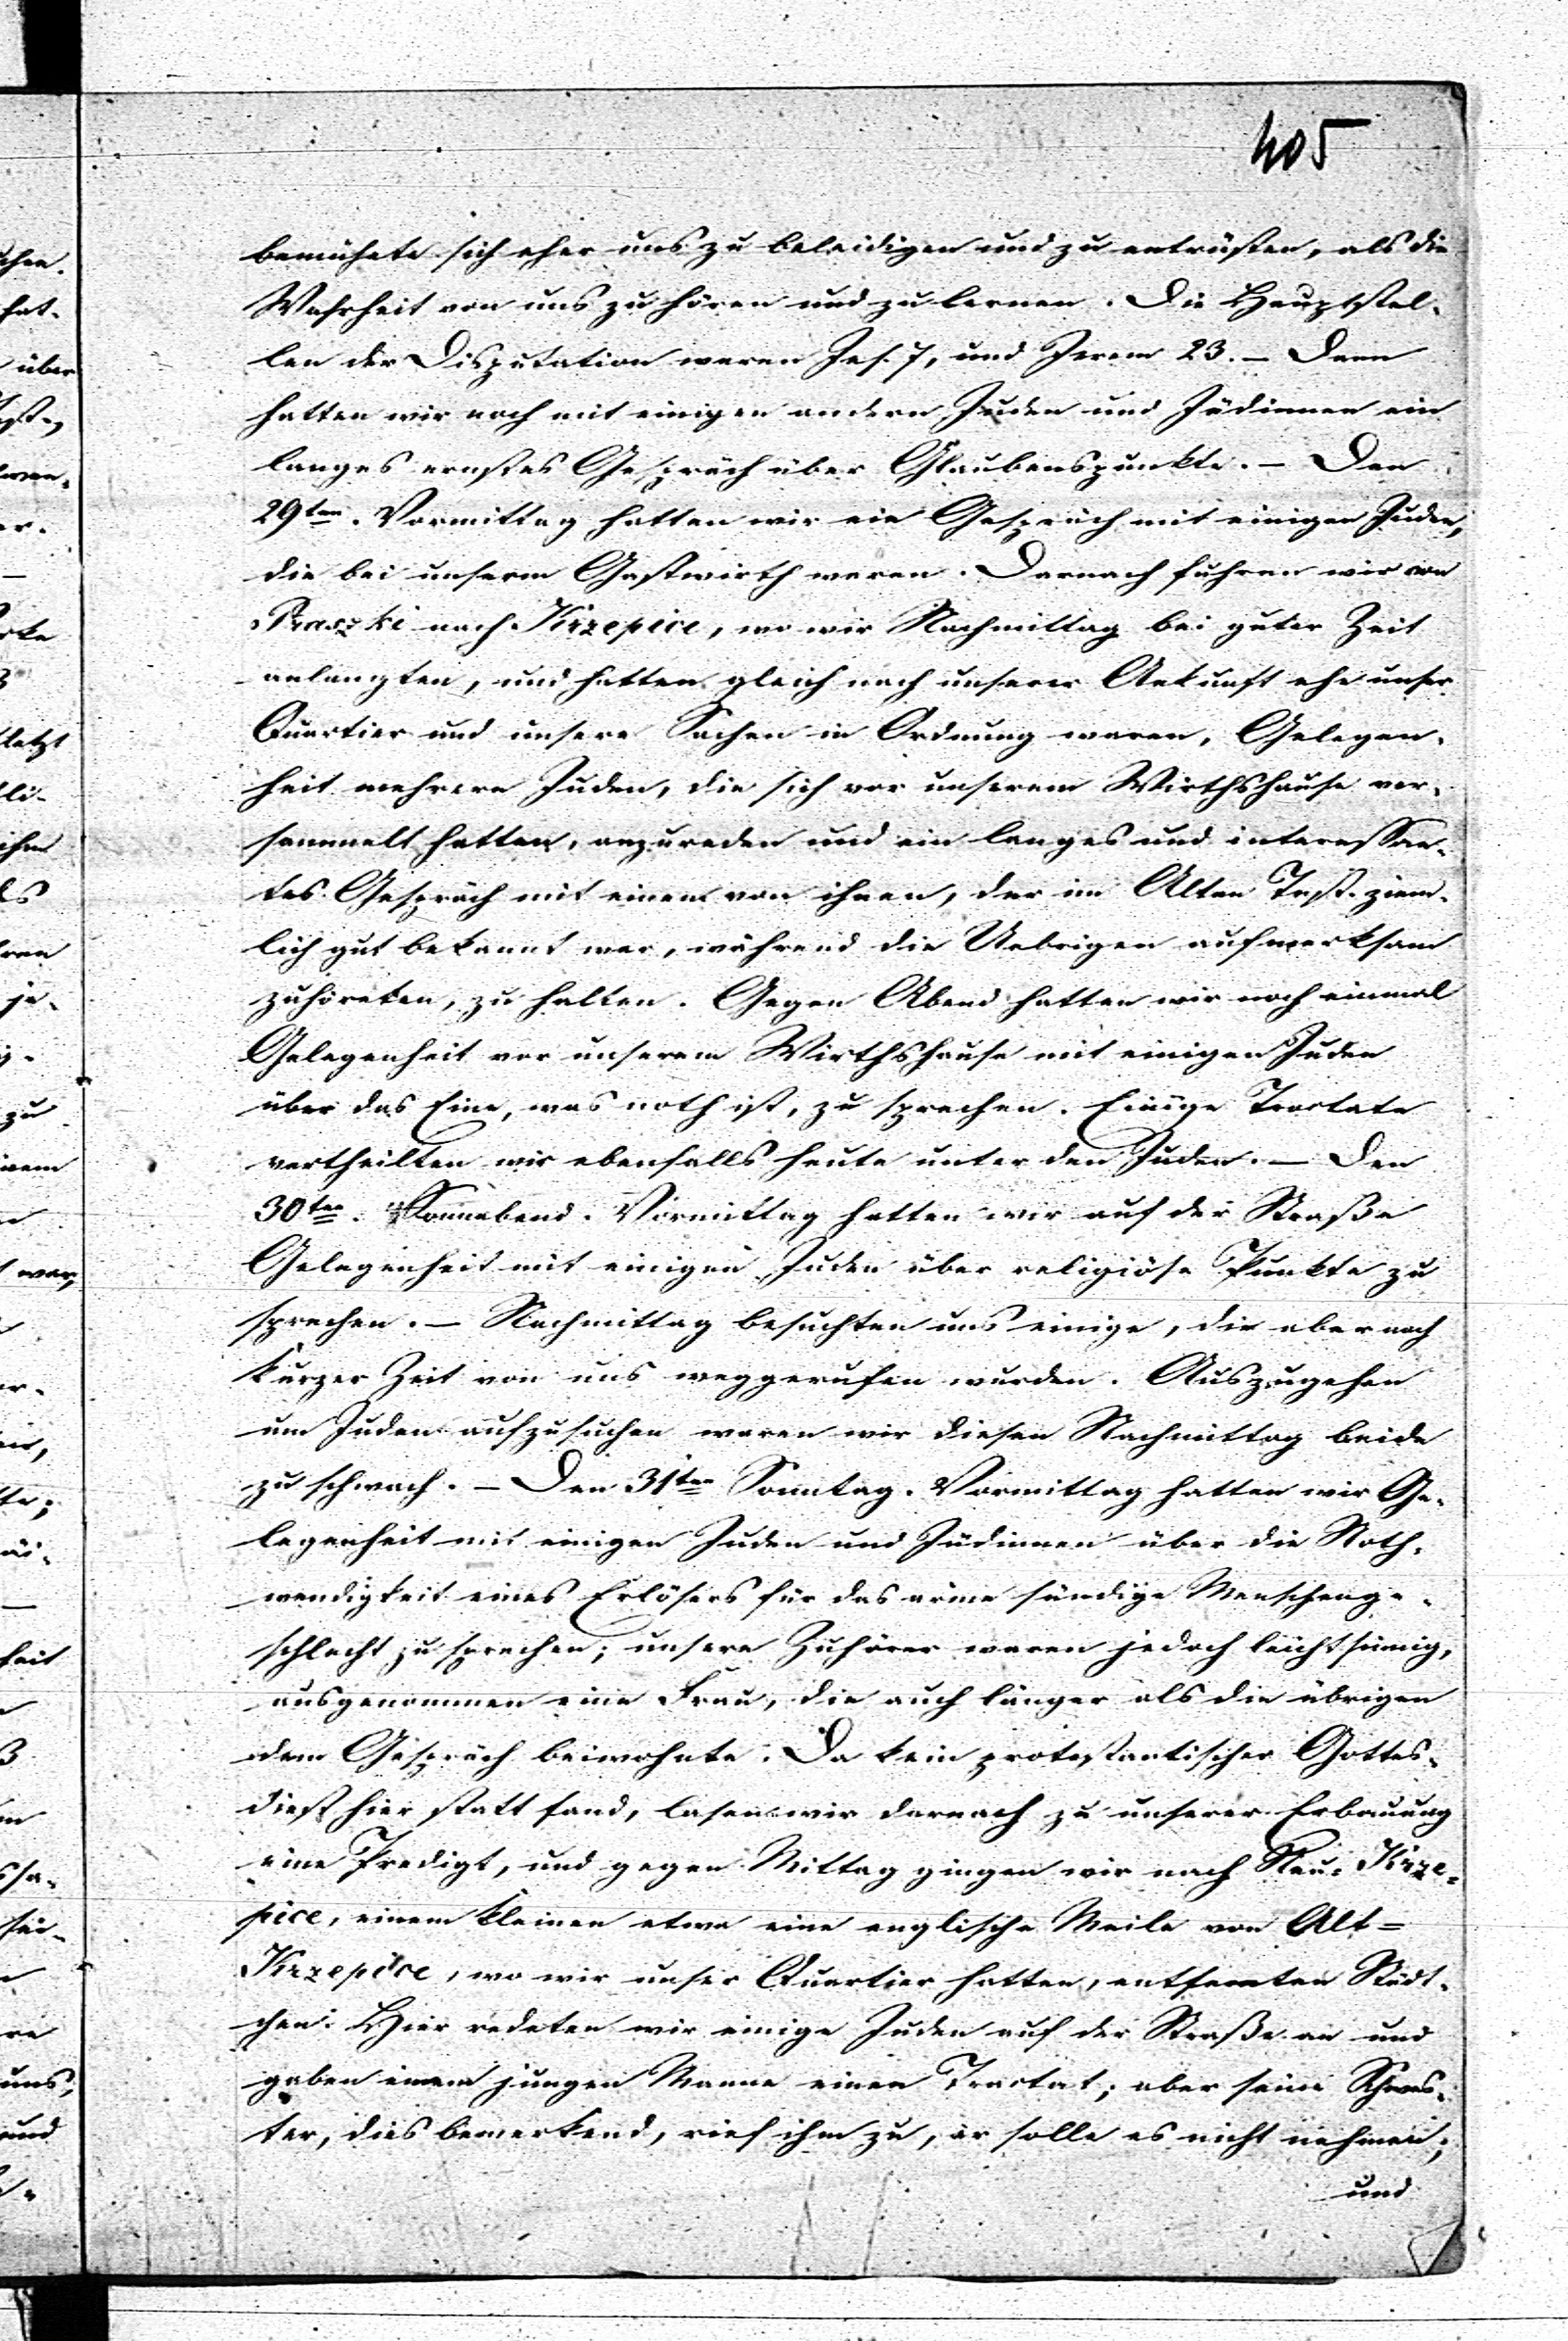 405
bemühete sich eher uns zu beleidigen und zu entrüsten, als die
Wahrheit von uns zu hören und zu lernen. Die Hauptstel-
len der Disputation waren Jes. 7, und Jerem 23. – Dann
hatten wir noch mit einigen andern Juden und Jüdinnen ein
langes ernstes Gespräch über Glaubenspunkte. – Den
29ten. Vormittag hatten wir ein Gespräch mit einigen Juden,
die bei unserm Gastwirth waren. Darnach fuhren wir von
Praszki nach Krzepice, wo wir Nachmittag bei guter Zeit
anlangten, und hatten gleich nach unserer Ankunft ehe unser
Quartier und unsere Sachen in Ordnung waren, Gelegen-
heit mehrere Juden, die sich vor unserem Wirthshause ver-
sammelt hatten, anzureden und ein langes und interessan-
tes Gespräch mit einem von ihnen, der im Alten Test. ziem-
lich gut bekannt war, während die Uebrigen aufmerksam
zuhöreten, zu halten. Gegen Abend hatten wir noch einmal
Gelegenheit vor unserem Wirthshause mit einigen Juden
über das Eine, was noth ist, zu sprechen. Einige Tractate
vertheilten wir ebenfalls heute unter den Juden. – Den
30ten. Sonnabend. Vormittag hatten wir auf der Straße
Gelegenheit mit einigen Juden über religiöse Punkte zu
sprechen. – Nachmittag besuchten uns einige, die aber nach
kurzer Zeit von uns weggerufen wurden. Auszugehen
um Juden aufzusuchen waren wir diesen Nachmittag beide
zu schwach. – Den 31ten Sonntag. Vormittag hatten wir Ge-
legenheit mit einigen Juden und Jüdinnen über die Noth-
wendigkeit eines Erlösers für das arme sündige Menschenge-
schlecht zu sprechen; unsere Zuhörer waren jedoch leichtsinnig,
ausgenommen eine Frau, die auch länger als die übrigen
dem Gespräch beiwohnte. Da kein protestantischer Gottes-
dienst hier statt fand, lasen wir darnach zu unserer Erbauung
eine Predigt, und gegen Mittag gingen wir nach Neu-Krze-
pice, einem kleinen etwa eine englische Meile von Alt=
Krzepice, wo wir unser Quartier hatten, entfernten Städt-
chen. Hier redeten wir einige Juden auf der Straße an und
gaben einem jungen Manne einen Tractat; aber seine Schwes-
ter, dies bemerkend, rief ihm zu, er solle es nicht nehmen;
und